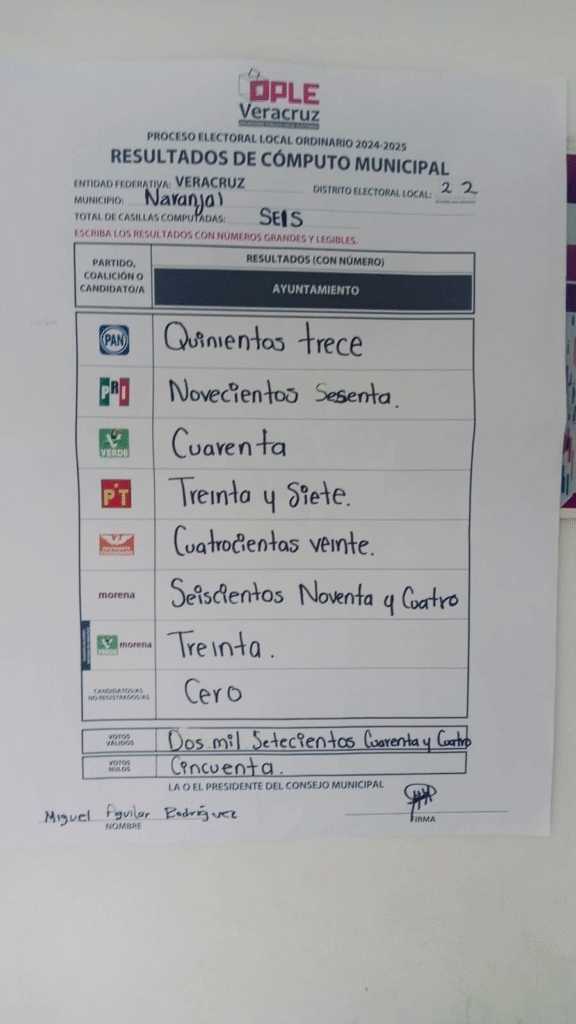 OPLE
Veracruz
PROCESO ELECTORAL LOCAL ORDINARIO 2024-2025
RESULTADOS DE CÓMPUTO MUNICIPAL
ENTIDAD FEDERATIVA: VERACRUZ DISTRITO ELECTORAL LOCAL: 22
MUNICIPIO: Naranjal
TOTAL DE CASILLAS COMPUTADAS: SEIS
ESCRIBA LOS RESULTADOS CON NÚMEROS GRANDES Y LEGIBLES.
PARTIDO, COALICIÓN O CANDIDATO/A
RESULTADOS (CON NÚMERO)
AYUNTAMIENTO
PAN Quinientos trece
PRI Novecientos Sesenta.
VERDE Cuarenta
PT Treinta y Siete.
Cuatrocientas veinte.
morena Seiscientos Noventa y Cuatro
VERDE morena Treinta.
CANDIDATOS/AS NO REGISTRADOS/AS Cero
VOTOS VÁLIDOS Dos mil Setecientos Cuarenta y Cuatro
VOTOS NULOS Cincuenta.
LA O EL PRESIDENTE DEL CONSEJO MUNICIPAL
Miguel Aguilar Rodríguez
NOMBRE FIRMA